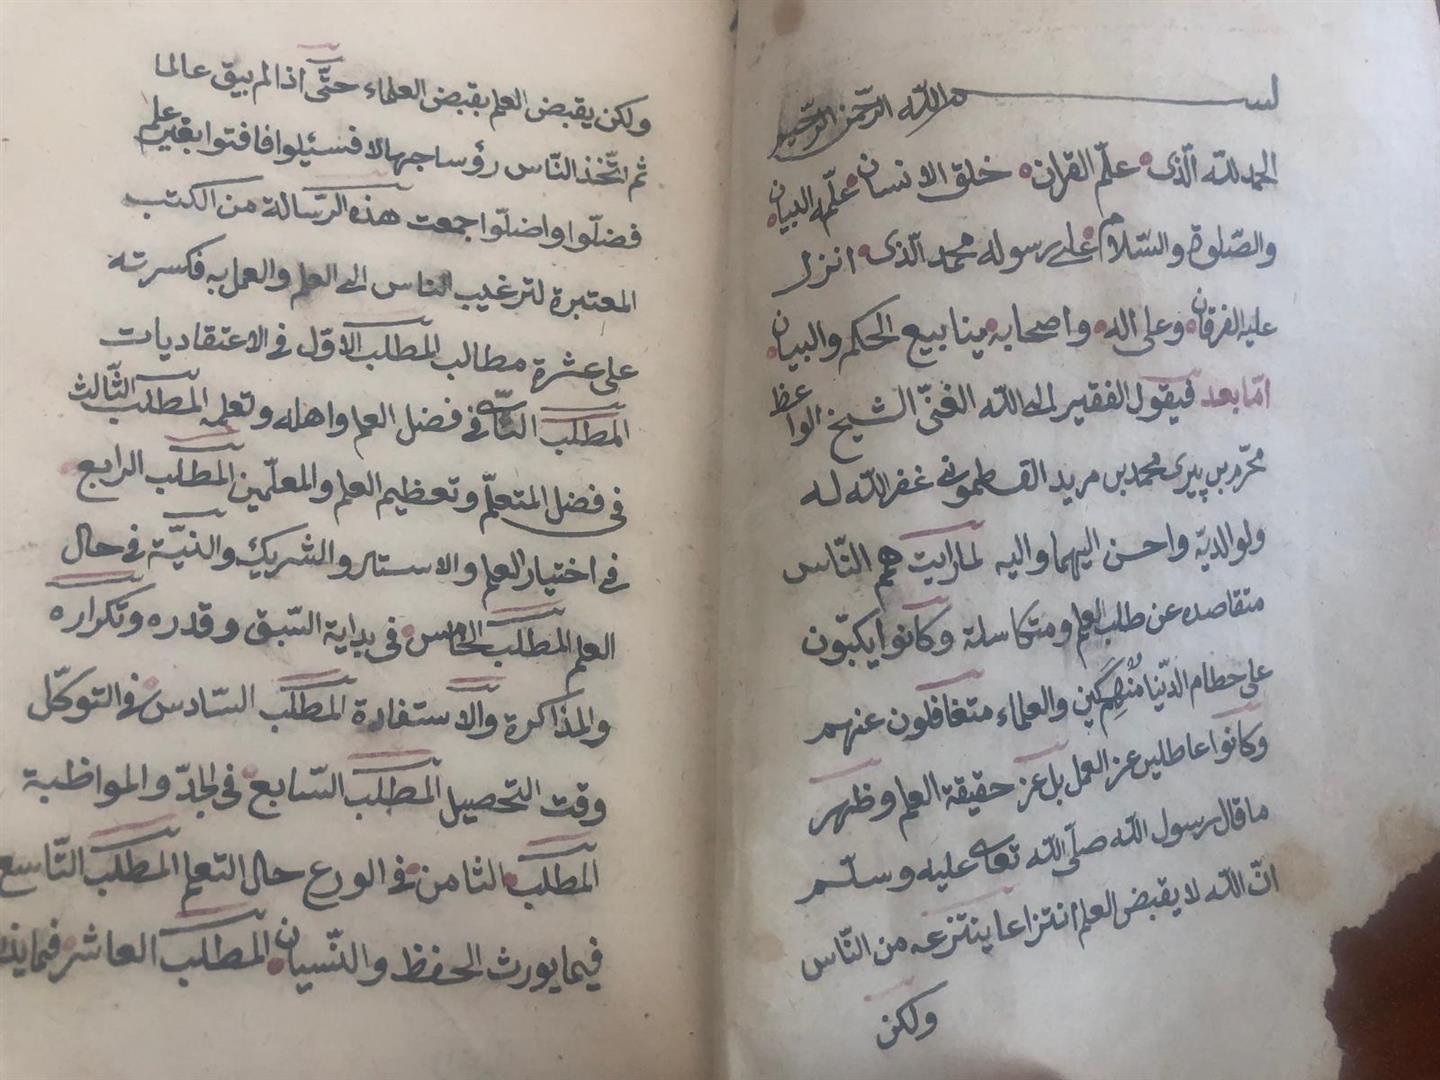 بسم الله الرّحمن الرّحيم
الحمد لله الّذى علّم القران خلق الانسان علّمه البيان
والصّلوة والسّلام على رسوله محمد الّذى انزل
عليه الفرقان وعلى اله واصحابه ينابيع الحكم والبيان
امّا بعد فيقول الفقير الى الله الغنىّ الشيخ الواعظ
محرّم بن پيرى محمد بن مريد القسطمونى غفر الله له
ولوالديه واحسن اليهما واليه لما رايت همم النّاس
متقاصده عن طلب العلم ومتكاسلة وكانوا يكبّون
على حطام الدّنيا مُنْهَمِكين والعلماء متغافلون عنهم
وكانوا عاطلين عن العمل بل عن حقيقة العلم وظهر
ما قال رسول الله صلّى الله تعالى عليه وسلم
انّ الله لا يقبض العلم انتزاعا ينتزعه من النّاس
ولكن
ولكن يقبض العلم بقبض العلماء حتّى اذا لم يبق عالما
ثم اتّخذ النّاس رؤسا جهالا فسئلوا فافتوا بغير علم
فضلّوا واضلّوا جمعت هذه الرّسالة من الكتب
المعتبرة لترغيب الناس الى العلم والعمل به فكسرته
على عشرة مطالب المطلب الاوّل فى الاعتقاديات
المطلب الثّانى فى فضل العلم واهله وتعلمه المطلب الثّالث
فى فضل المتعلّم وتعظيم العلم والمعلّمين المطلب الرابع
فى اختيار العلم والاستاد والشريك والنيّة فى حال
العلم المطلب الخامس فى بداية السّبق وقدره وتكراره
والمذاكرة والاستفادة المطلب السّادس فى التوكّل
وقت التحصيل المطلب السّابع فى الجدّ والمواظبة
المطلب الثامن فى الورع حال التعلم المطلب التّاسع
فيما يورث الحفظ والنّسيان المطلب العاشر فيما